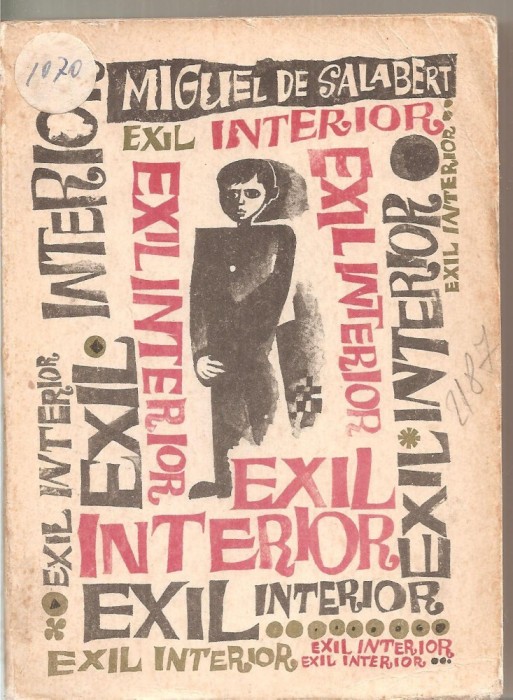 1070
MIGUEL DE SALABERT
EXIL INTERIOR
EXIL INTERIOR
EXIL. INTERIOR
EXIL INTERIOR
EXIL INTERIOR
EXIL INTERIOR
EXIL·INTERIOR
2187
EXIL
INTERIOR
EXIL INTERIOR
EXIL INTERIOR
EXIL INTERIOR
EXIL INTERIOR